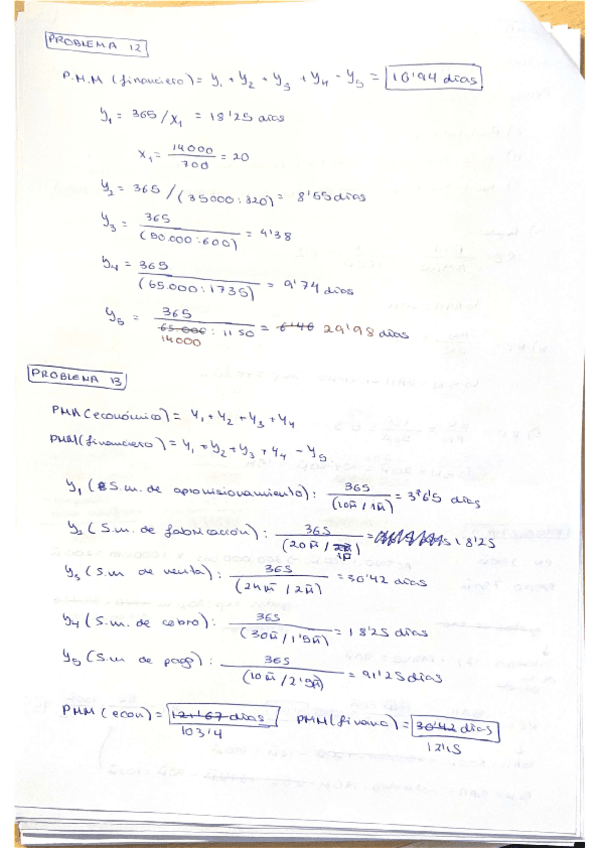 PROBLEMA 12
P.M.M (financiero) = y1 + y2 + y3 + y4 - y5 = 10'94 dias
y1 = 365/x1 = 18'25 dias
x1 = 14000/700 = 20
y2 = 365/(35000:820) = 8'55 dias
y3 = 365/(50.000:600) = 4'38
y4 = 365/(65.000:1735) = 9'74 dias
y5 = 365/(65.000 14000 : 1150) = 6'46 29'98 dias
PROBLEMA 13
PMM (económico) = y1 + y2 + y3 + y4
PMM (financiero) = y1 + y2 + y3 + y4 - y5
y1 (S.m. de aprovisionamiento): 365/(10m̄/1m̄) = 36'5 dias
y2 (S.m. de fabricación): 365/(20m̄/1m̄) = 18'25
y3 (S.m de venta): 365/(24m̄/2m̄) = 30'42 dias
y4 (S.m. de cobro): 365/(30m̄/1'5m̄) = 18'25 dias
y5 (S.m de pago): 365/(10m̄/2'5m̄) = 91'25 dias
PMM (econ) = 121'67 dias PMM (financ) = 30'42 dias
103'4 12'15